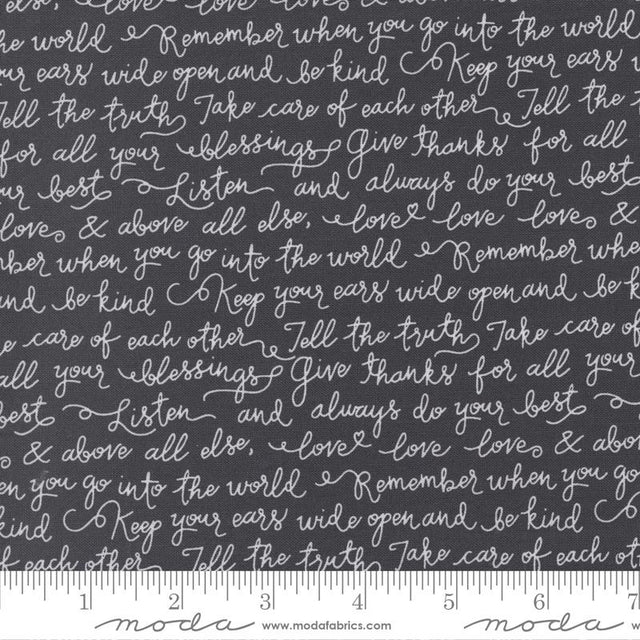 else, love love love
he world Remember when you go into the world
our ears wide open and be kind Keep your ears
Tell the truth Take care of each other Tell the
for all your blessings Give thanks for all
ur best Listen and always do your best
love & above all else, love love love &
mber when you go into the world Remember whe
and be kind Keep your ears wide open and be k
e care of each other Tell the truth Take care of
all your blessings Give thanks for all your
best Listen and always do your best
& above all else, love love love & abo
en you go into the world Remember when you go
kind Keep your ears wide open and be kind
of each other Tell the truth Take care of each ot
1 2 3 4 5 6 7
moda www.modafabrics.com moda